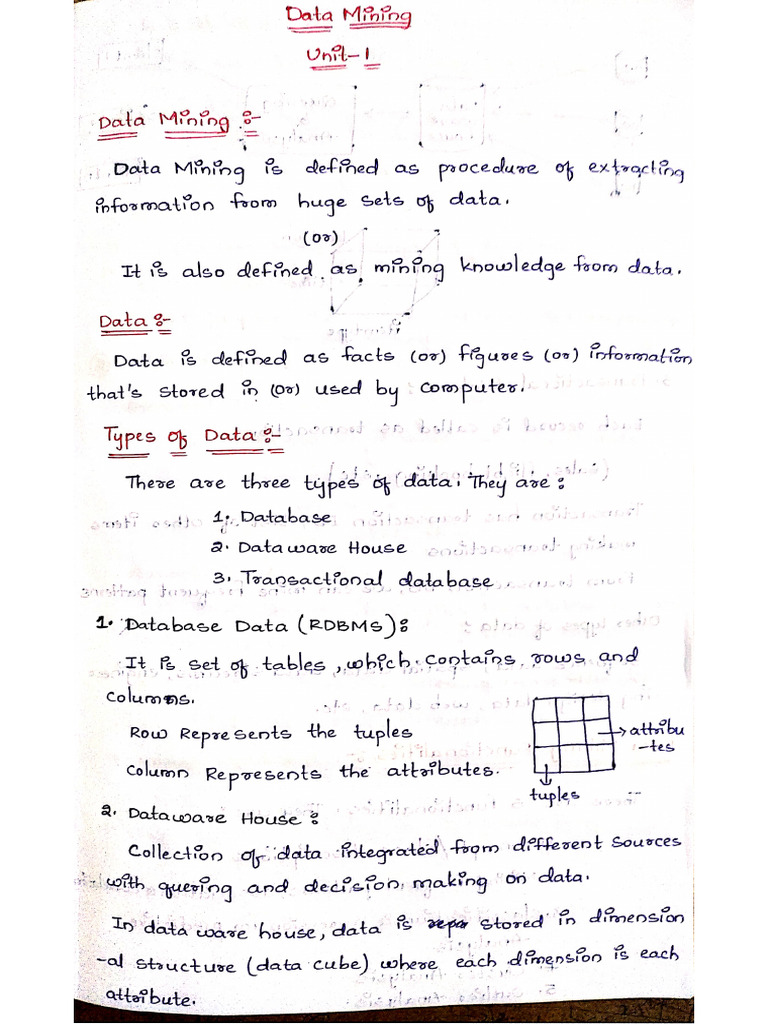 Data Mining
Unit-1
Data Mining :-
Data Mining is defined as procedure of extracting
information from huge sets of data.
(or)
It is also defined as mining knowledge from data.
Data :-
Data is defined as facts (or) figures (or) information
that's stored in (or) used by computer.
Types of Data :-
There are three types of data. They are :
1. Database
2. Dataware House
3. Transactional database
1. Database Data (RDBMS) :
It is set of tables, which contains rows and
columns.
Row Represents the tuples
Column Represents the attributes.
attribu
-tes
tuples
2. Dataware House :
Collection of data integrated from different sources
with quering and decision making on data.
In data ware house, data is stored in dimension
-al structure (data cube) where each dimension is each
attribute.